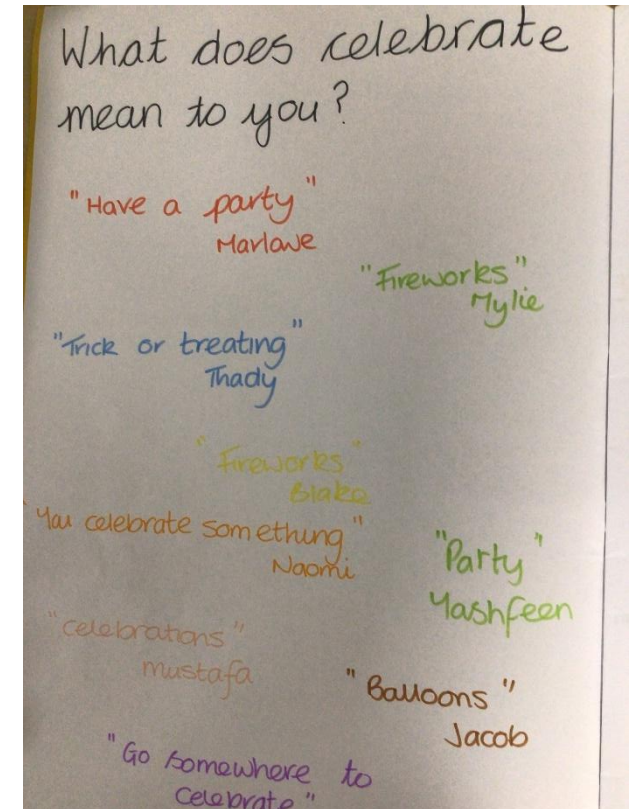 What does celebrate
mean to you?
"Have a party"
Marlowe
"Fireworks"
Mylie
"Trick or treating"
Thady
"Fireworks"
Blake
"You celebrate something"
Naomi
"Party"
Yashfeen
"celebrations"
mustafa
"Balloons"
Jacob
"Go somewhere to
celebrate"